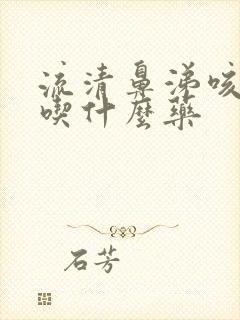 流清鼻涕咳
喫什麼藥
石芳